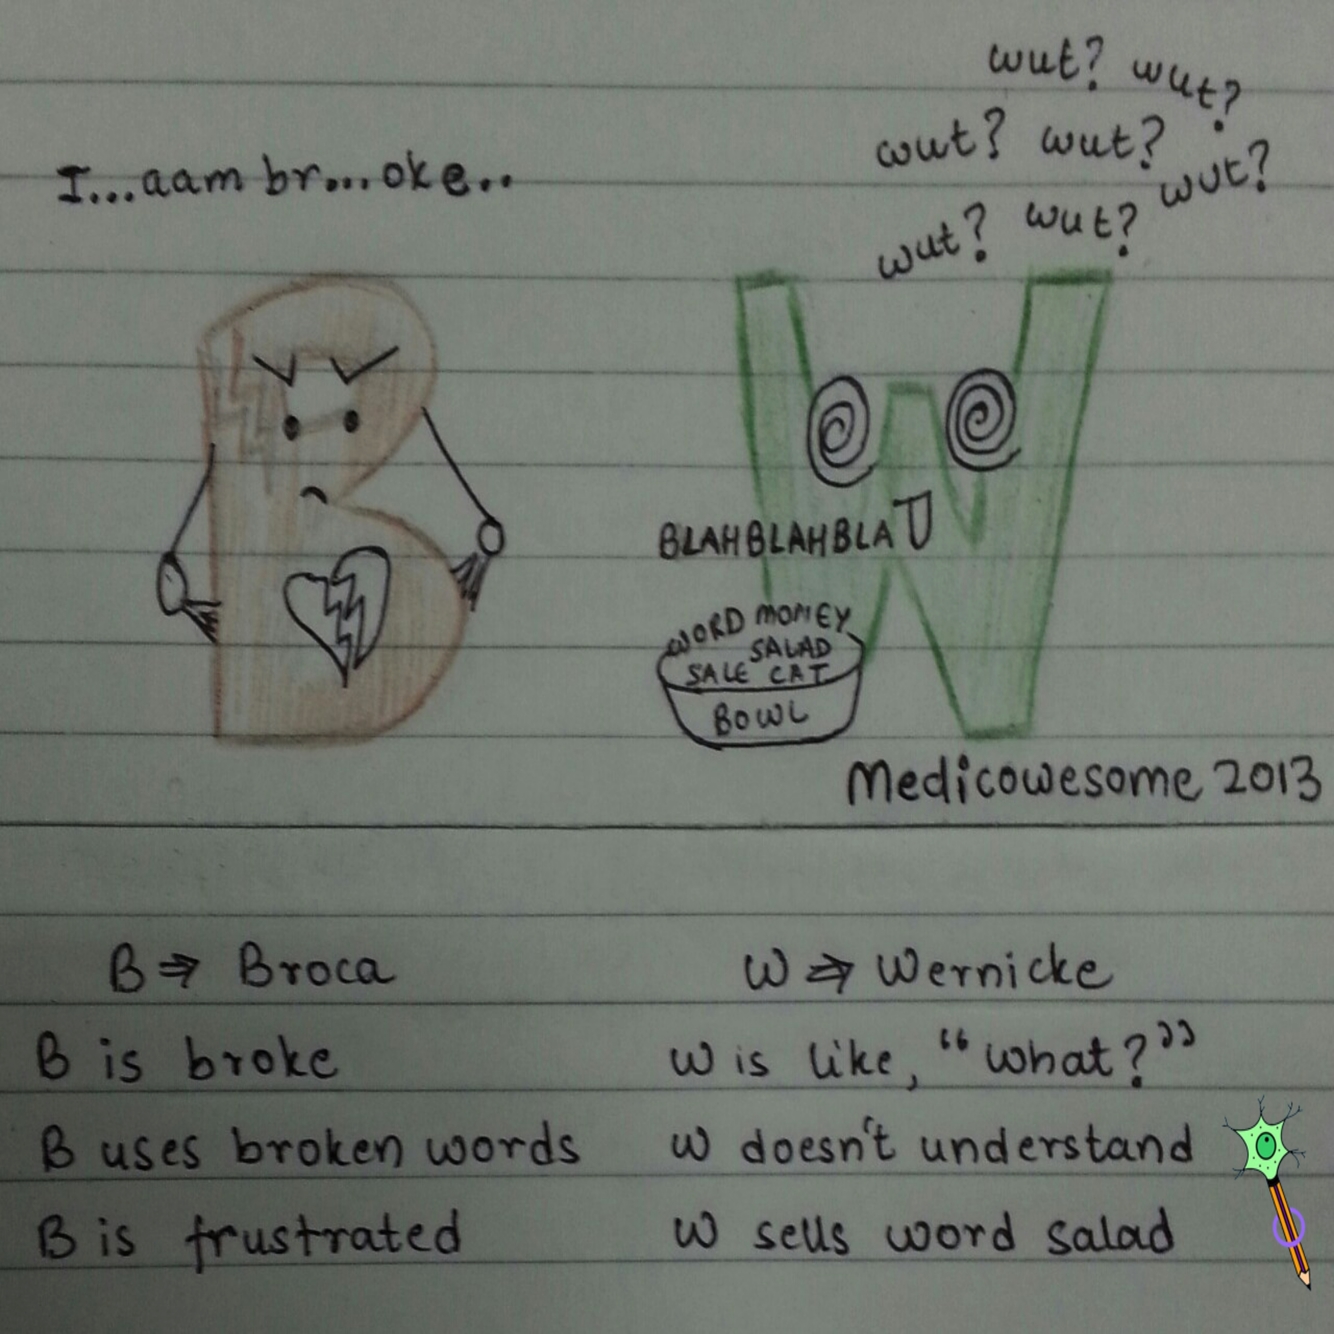 wut? wut?
wut? wut? wut?
wut? wut?
I...aam br...oke..
BLAHBLAHBLA
WORD MONEY
SALAD
SALE CAT
BOWL
Medicowesome 2013
B ⇒ Broca
W ⇒ Wernicke
B is broke
W is like, “what?”
B uses broken words
W doesn't understand
B is frustrated
W sells word salad